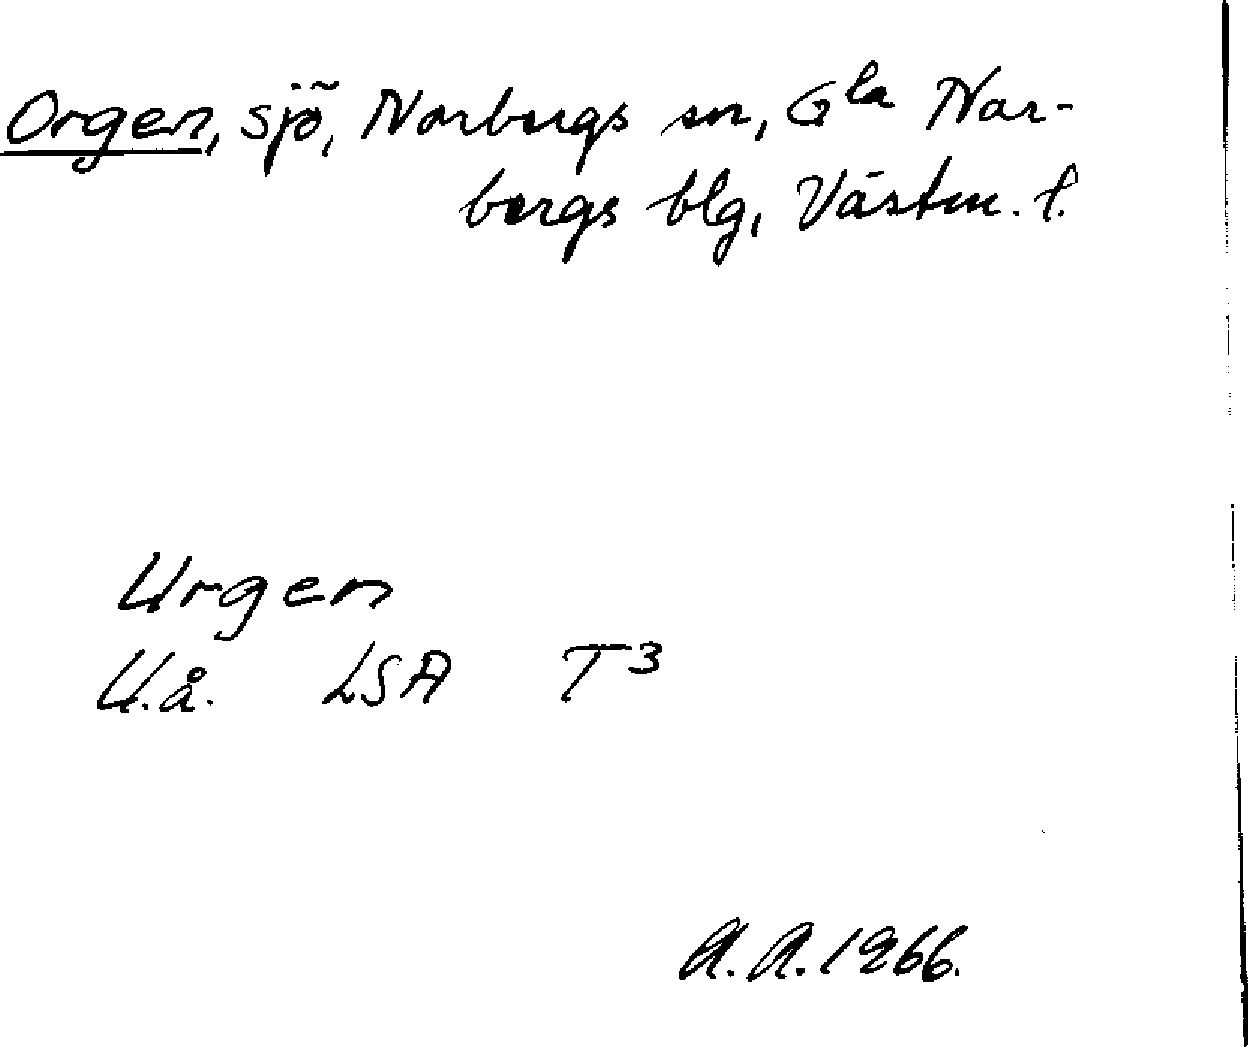 Orgen, sjö, Norbergs sn, Gla Nor-
bergs blg, Västm. l.
Urgen
U.å. LSA T3
A.A. 1966.